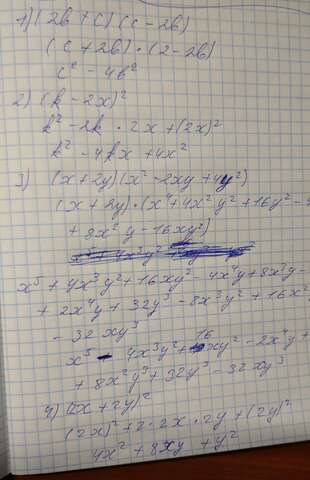 1) (2b + c)(c - 2b)
(c + 2b) · (2 - 2b)
c² - 4b²
2) (k - 2x)²
k² - 2k · 2x + (2x)²
k² - 4kx + 4x²
3) (x + 2y)(x² - 2xy + 4y²)
(x + 2y) · (x⁴ + 4x²y² + 16y² -
+ 8x²y - 16xy²)
x⁵ + 4x³y² + 16xy² - 4x⁴y + 8x³y -
+ 2x⁴y + 32y³ - 8x³y² + 16x²
- 32xy³
x⁵ - 4x³y² + 16xy² - 2x⁴y +
+ 8x²y³ + 32y³ - 32xy³
4) (2x + 2y)²
(2x)² + 2·2x · 2y + (2y)²
4x² + 8xy + y²